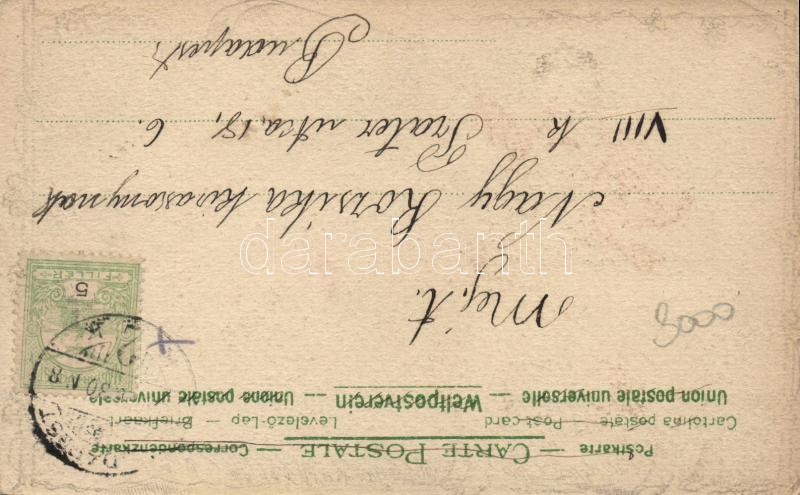 Postkarte — CARTE POSTALE — Correspondenzkarte
Cartolina postale — Post-card — Levelező-Lap — Briefkaart
Union postale universelle — Weltpostverein — Unione postale universale
FILLÉR
5
BUDAPEST
3000
Nagy Korsika kisasszonynak
VIII k Prater utca, 18, 6.
Budapest,
darabanth